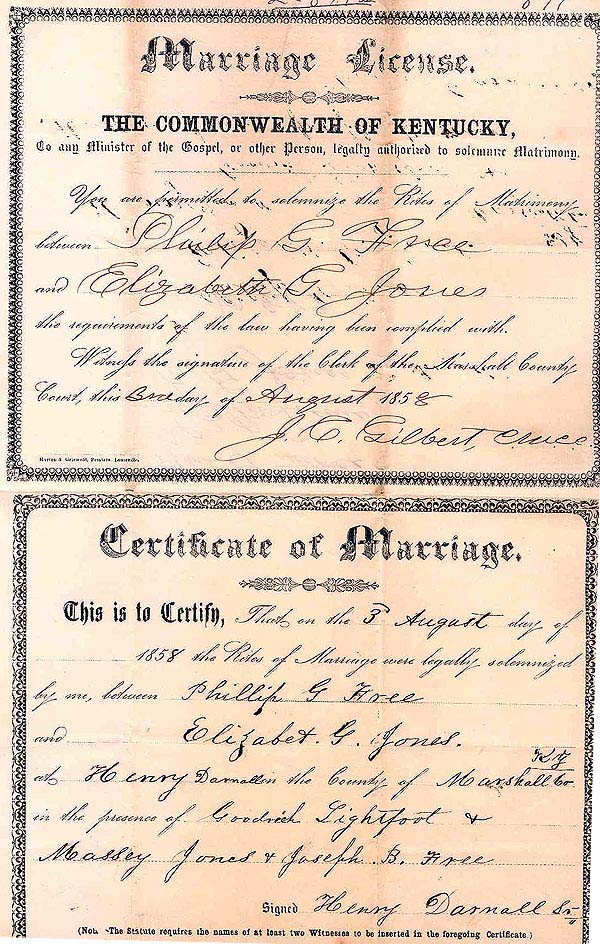 Marriage License.
THE COMMONWEALTH OF KENTUCKY,
To any Minister of the Gospel, or other Person, legally authorized to solemnize Matrimony.
You are permitted to solemnize the Rites of Matrimony
between Philip G. Free
and Elizabeth G. Jones
the requirements of the law having been complied with.
Witness the signature of the Clerk of the Marshall County
Court, this 3rd day of August 1858
J. C. Gilbert,
Certificate of Marriage.
This is to Certify, That on the 3 August day of
1858 the Rites of Marriage were legally solemnized
by me, between Phillip G Free
and Elizabet. G. Jones.
KY
at Henry Darnall in the County of Marshall Co
in the presence of Goodrich Lightfoot &
Massey Jones & Joseph. B. Free
Signed Henry Darnall Sr
(Note. -The Statute requires the names of at least two Witnesses to be inserted in the foregoing Certificate.)